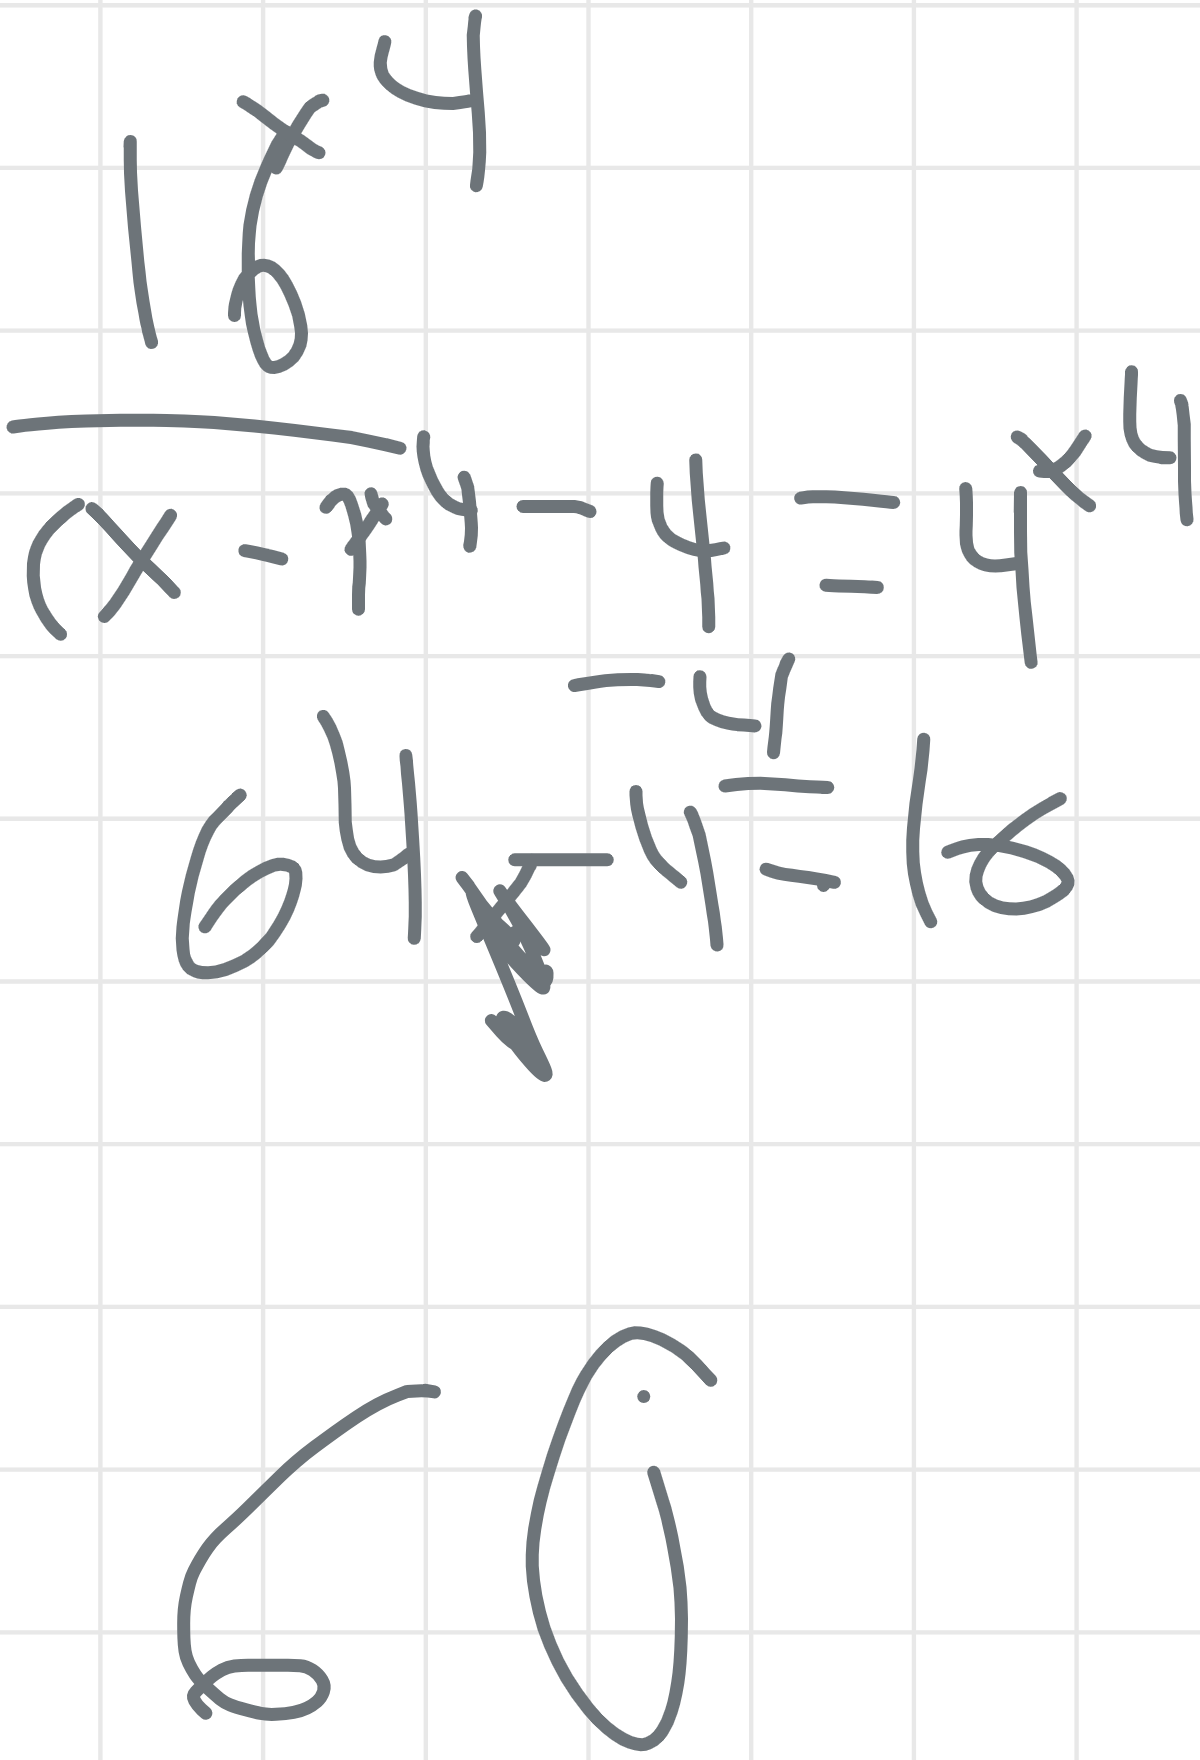 16 x 4
(x - 7 x 4 - 4 = 4 x 4
- 4 =
64 - 4 = 16
60